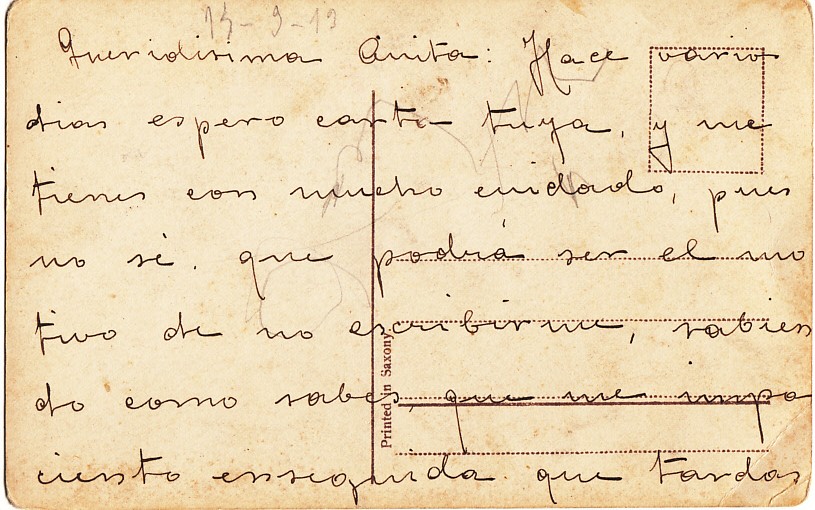 13-9-19
Queridisima Anita: Hace vario
dias espero carta tuya, y me
tienes con mucho cuidado, pues
no sé. que podrá ser el mo
tivo de no escribirme, sabien
do como sabes, que me impa
ciento enseguida que tardas
Printed in Saxony